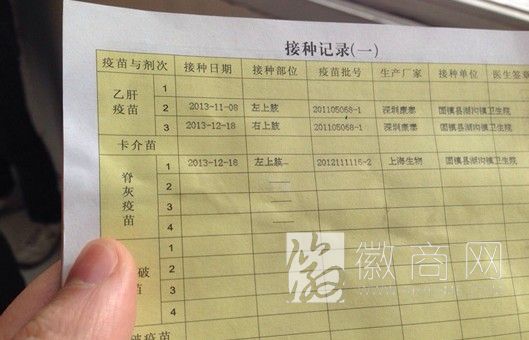 接种记录(一)
疫苗与剂次 接种日期 接种部位 疫苗批号 生产厂家 接种单位 医生签章
乙肝疫苗 1
2 2013-11-08 左上肢 201105068-1 深圳康泰 固镇县湖沟镇卫生院
3 2013-12-18 右上肢 201105068-1 深圳康泰 固镇县湖沟镇卫生院
卡介苗
脊灰疫苗 1 2013-12-18 左上肢 2012111116-2 上海生物 固镇县湖沟镇卫生院
2
3
4
破 1
苗 2
3
4
疫苗
徽商网